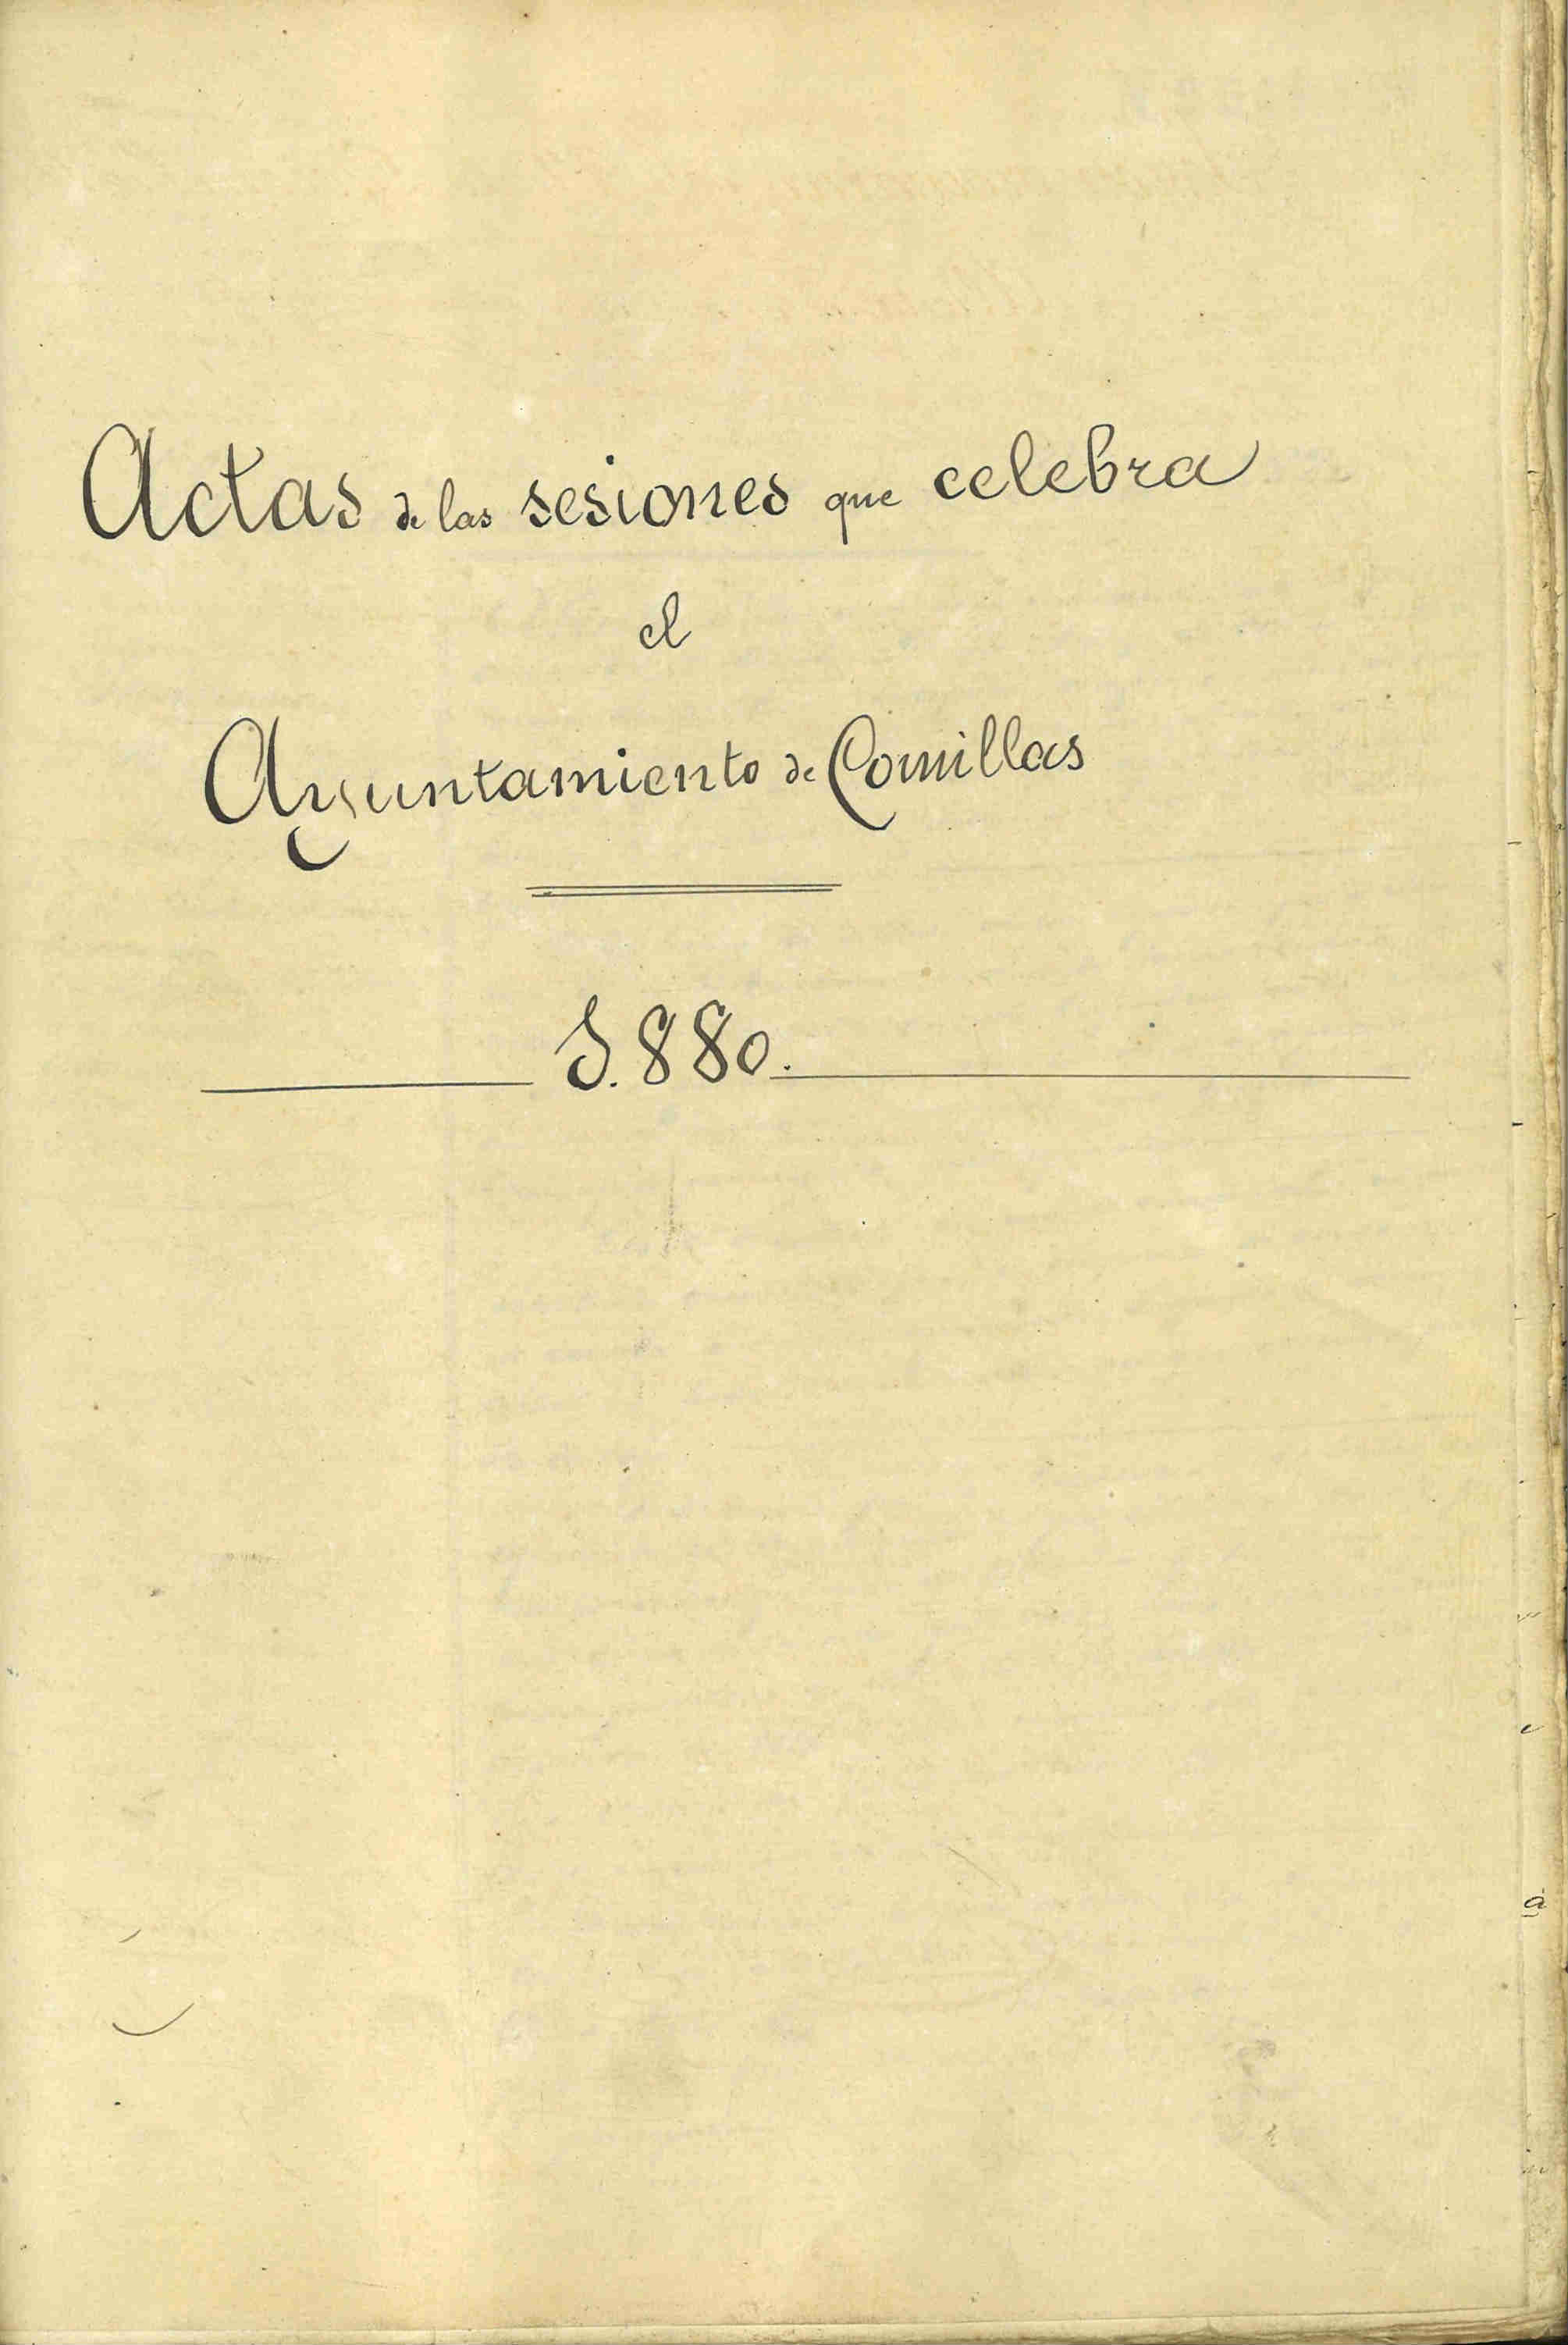 Actas de las sesiones que celebra
el
Ayuntamiento de Comillas
1.880.